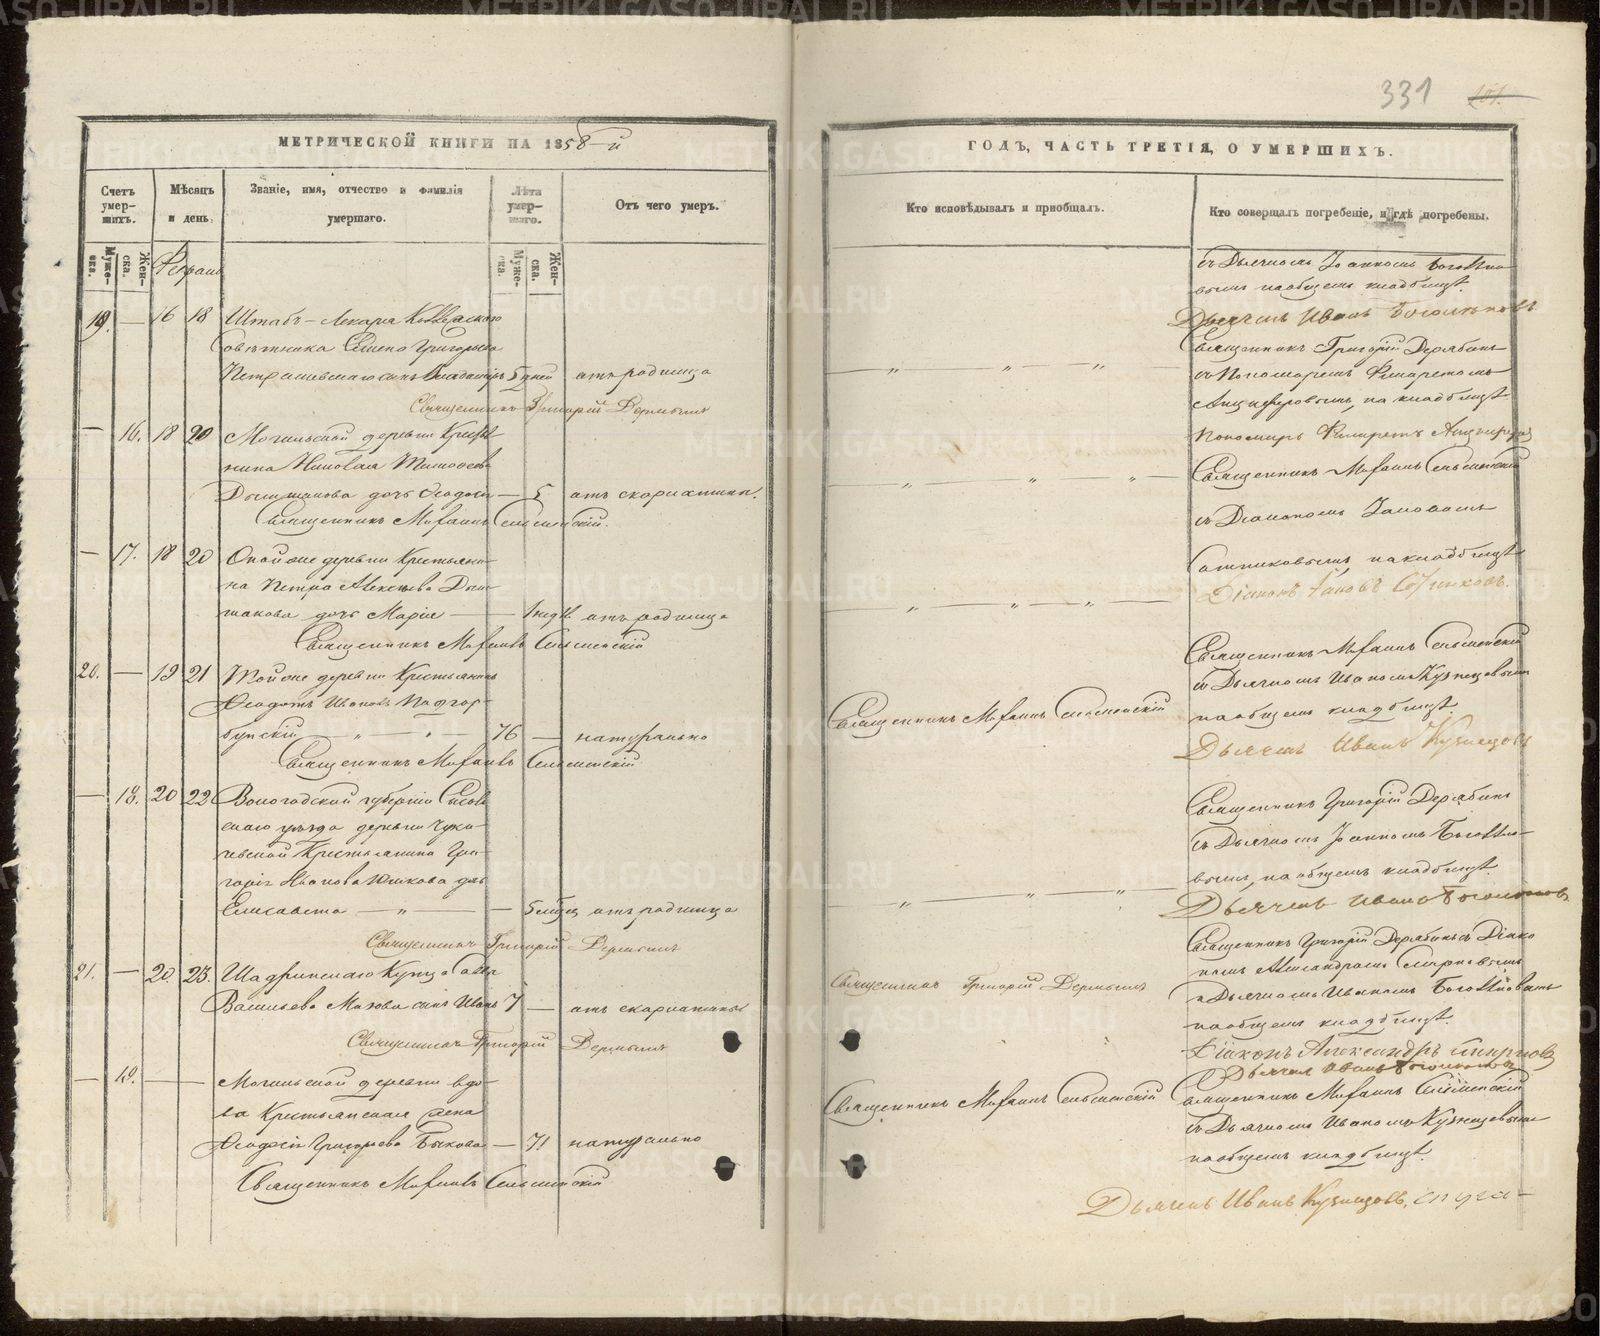 331
МЕТРИЧЕСКОЙ КНИГИ НА 1858-й
Счетъ умер-
шихъ.
Мѣсяцъ
и день.
Званіе, имя, отчество и фамилія
умершаго.
Лѣта
умер-
шаго.
Отъ чего умеръ.
Муже-
ска.
Жен-
ска.
Муже-
ска.
Жен-
ска.
Февраль
19. — 16 18 Штабъ-Лекаря Коллежскаго
Совѣтника Семена Григорьева
сынъ Владиміръ 5 дней отъ родимца
Священникъ Григорій Дерябинъ
— 16. 18 20 Могильской деревни Крестья-
нина Николая Тимофеева
дочь Феодосія — 5 отъ скарлатины.
Священникъ Михаилъ
— 17. 18 20 Оной же деревни Крестьяни-
на Петра Алексѣева
дочь Марія — 1 недѣ. отъ родимца
Священникъ Михаилъ
20. — 19 21 Той же деревни Крестьянинъ
Феодотъ Ивановъ Подгор-
бунскій — " — " — 76 — натурально
Священникъ Михаилъ
— 18. 20 22 Вологодской губерніи
скаго уѣзда деревни
Крестьянина Гри-
горія Иванова Юшкова дочь
Елисавета — " — — 5 мѣсяц. отъ родимца
Священникъ Григорій Дерябинъ
21. — 20. 23 Шадринскаго Купца Саввы
Васильева Мазова сынъ Иванъ 7 — отъ скарлатины
Священникъ Григорій Дерябинъ
— 19. — — Могильской деревни вдо-
ва Крестьянская жена
Феодосія Григорьева Быкова — 71 натурально
Священникъ Михаилъ
ГОДЪ, ЧАСТЬ ТРЕТІЯ, О УМЕРШИХЪ.
Кто исповѣдывалъ и пріобщалъ.
Кто совершалъ погребеніе, и гдѣ погребены.
съ Дьячкомъ Іоанномъ
вымъ на общемъ кладбищѣ.
Дьячекъ Иванъ
Священникъ Григорій Дерябинъ
съ Пономаремъ Филаретомъ
Анциферовымъ, на кладбищѣ
Пономарь Филаретъ Анциферовъ
Священникъ Михаилъ
съ Діакономъ Іаковомъ
Сотниковымъ, на кладбищѣ
Діаконъ Іаковъ Сотниковъ.
Священникъ Михаилъ
съ Дьячкомъ Иваномъ Кузнецовымъ
на общемъ кладбищѣ.
Дьячекъ Иванъ Кузнецовъ
Священникъ Михаилъ
Священникъ Григорій Дерябинъ
съ Дьячкомъ Іоанномъ
вымъ, на общемъ кладбищѣ.
Дьячекъ Иванъ
Священникъ Григорій Дерябинъ съ Діако
номъ Александромъ Смирновымъ
и Дьячкомъ Иваномъ
на общемъ кладбищѣ.
Священникъ Григорій Дерябинъ
Діаконъ Александръ Смирновъ
Дьячекъ Иванъ
Священникъ Михаилъ
Священникъ Михаилъ
съ Дьячкомъ Иваномъ Кузнецовымъ
на общемъ кладбищѣ.
Дьячекъ Иванъ Кузнецовъ.
METRIKI.GASO-URAL.RU